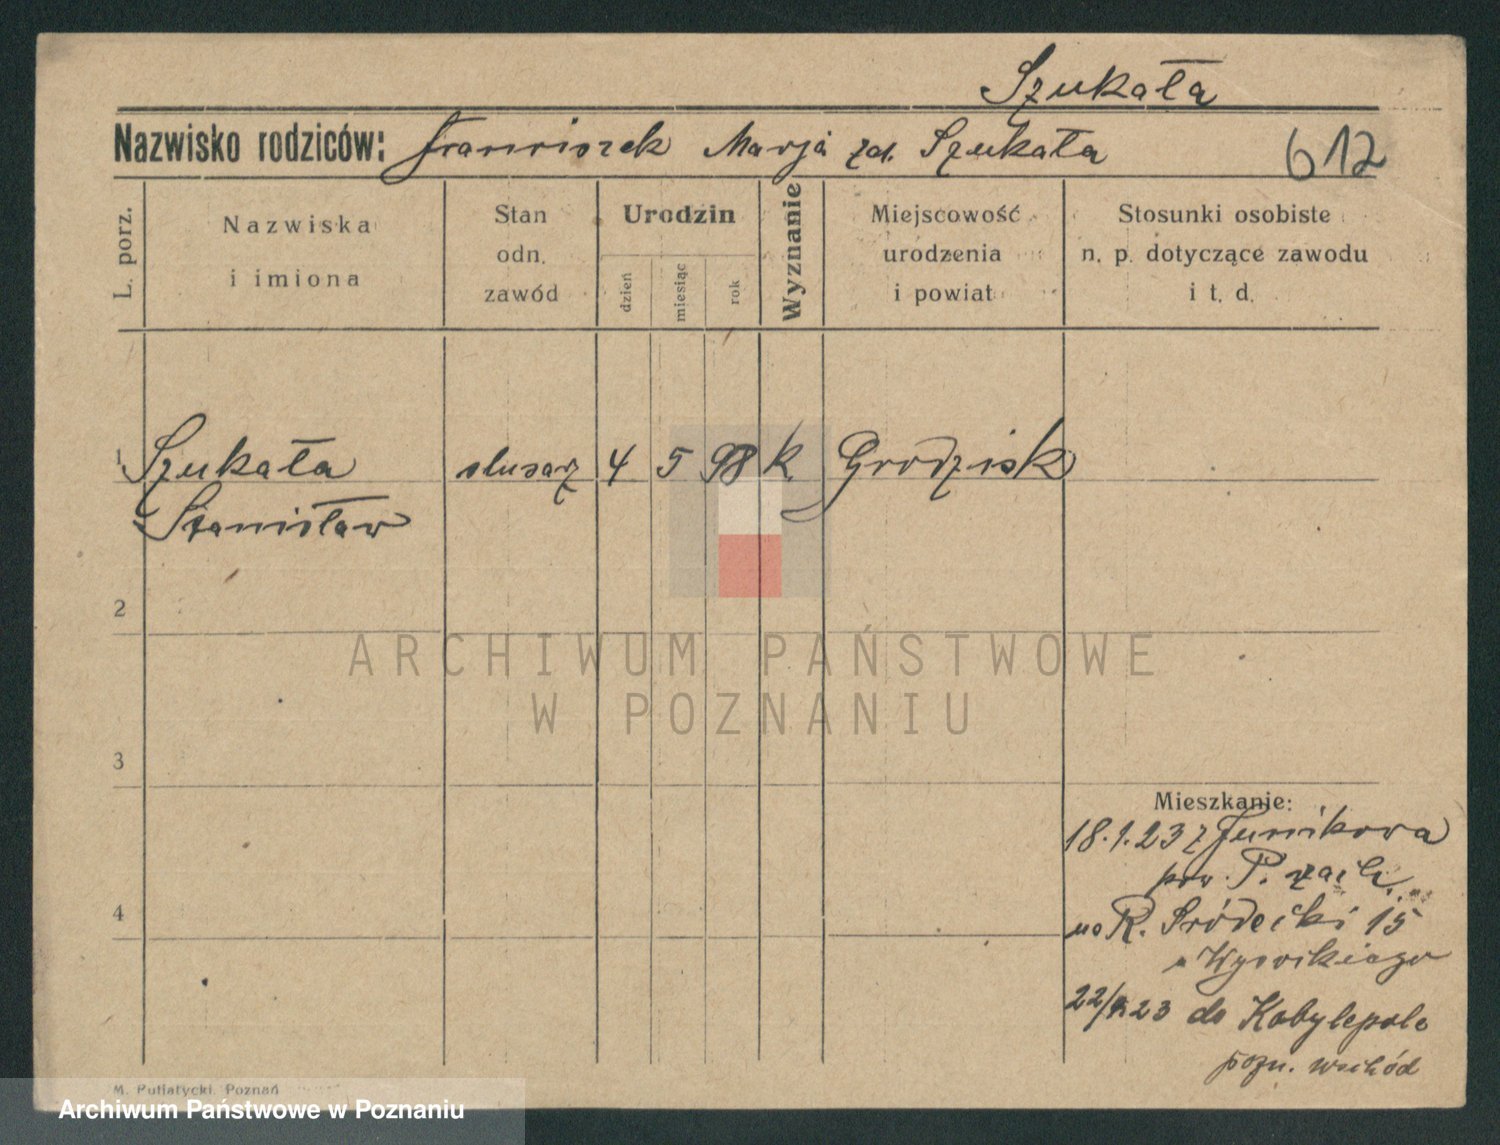 Szukała
Nazwisko rodziców: Franciszek Marja zd. Szukała 612
L. porz.
Nazwiska
i imiona
Stan
odn.
zawód
Urodzin
dzień
miesiąc
rok
Wyznanie
Miejscowość
urodzenia
i powiat
Stosunki osobiste
n. p. dotyczące zawodu
i t. d.
1 Szukała slusarz 4 5 98 k. Grodzisk
Stanisław
2
ARCHIWUM PAŃSTWOWE
W POZNANIU
3
Mieszkanie:
18.1.23 z Junikowa
pow. P. zach.
na R. Śródecki 15
Wysockiego
4
22/ 23 do Kobylepole
pozn. wschód
M. Putiatycki, Poznań
Archiwum Państwowe w Poznaniu